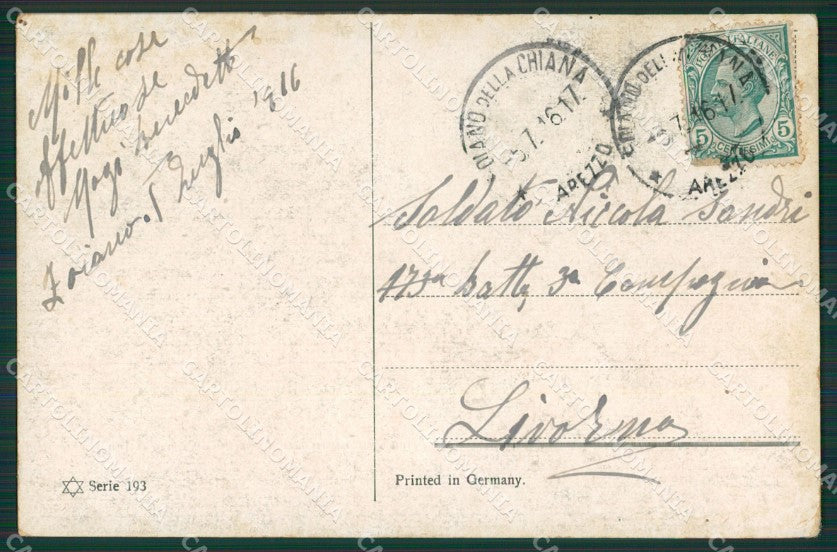 Mille cose
Affettuose
Magi Benedetto
Foiano 5 luglio 1916
FOIANO DELLA CHIANA
5.7.16.17
AREZZO
FOIANO DELLA CHIANA
5.7.16.17
AREZZO
POSTE ITALIANE
5 CENTESIMI 5
Soldato Nicola Sandri
173a Batt 3a Compagnia
Livorno
Serie 193
Printed in Germany.
CARTOLINOMANIA